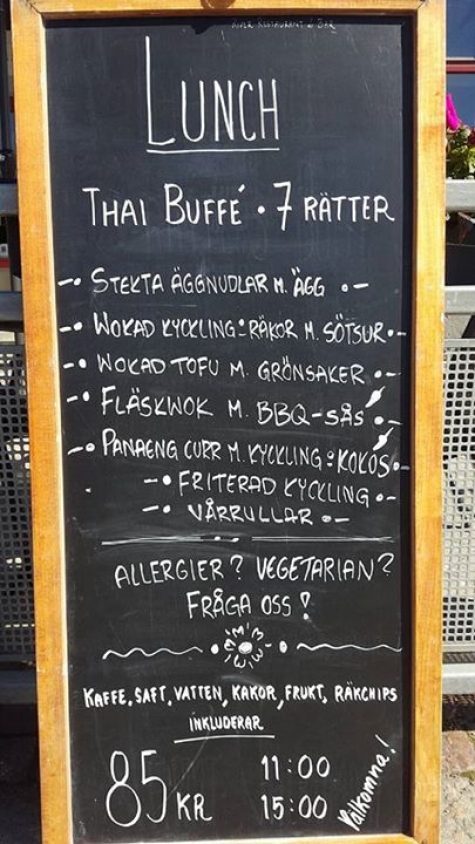 RIVER RESTAURANT & BAR
LUNCH
THAI BUFFÉ · 7 RÄTTER
STEKTA ÄGGNUDLAR M. ÄGG
WOKAD KYCKLING & RÄKOR M. SÖTSUR
WOKAD TOFU M. GRÖNSAKER
FLÄSKWOK M. BBQ-SÅS
PANAENG CURR M. KYCKLING & KOKOS
FRITERAD KYCKLING
VÅRRULLAR
ALLERGIER? VEGETARIAN?
FRÅGA OSS!
KAFFE, SAFT, VATTEN, KAKOR, FRUKT, RÄKCHIPS
INKLUDERAR
85 KR
11:00
15:00
Välkomna!